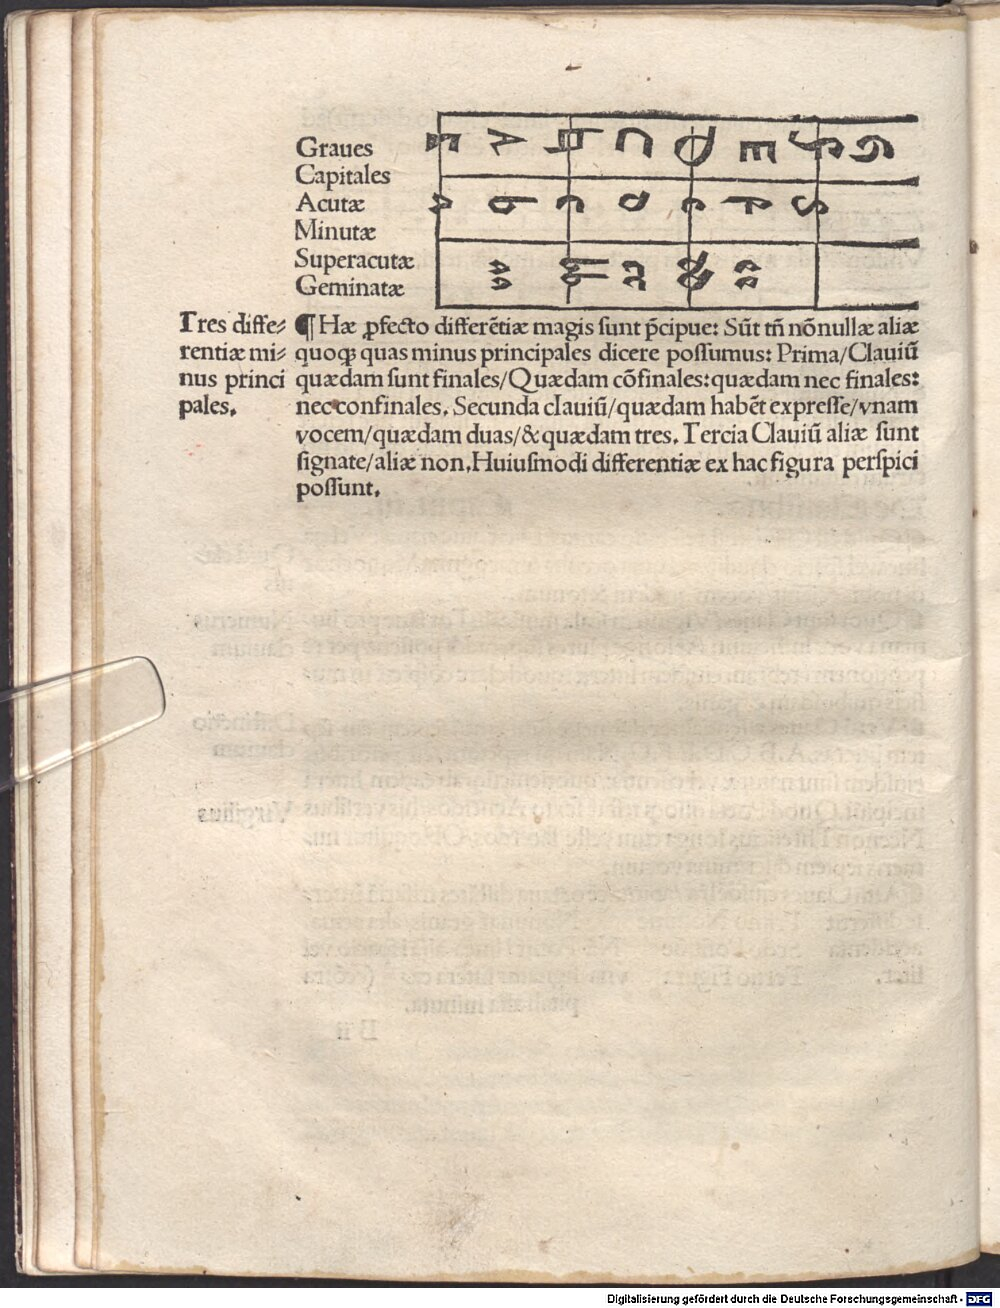 Graues
Capitales
Acutæ
Minutæ
Superacutæ
Geminatæ
Γ A B C D E F G
a b c d e f g
aa bb cc dd ee
Tres diffe⸗
rentiæ mi⸗
nus princi
pales.
¶ Hæ ꝓfecto differẽtiæ magis sunt p̃cipue: Sũt tñ nõnullæ aliæ
quoqꝫ quas minus principales dicere possumus: Prima/Clauiũ
quædam sunt finales/Quædam cõfinales: quædam nec finales:
nec confinales. Secunda clauiũ/quædam habẽt expresse/vnam
vocem/quædam duas/& quædam tres. Tercia Clauiũ aliæ sunt
signate/aliæ non. Huiusmodi differentiæ ex hac figura perspici
possunt.
Digitalisierung gefördert durch die Deutsche Forschungsgemeinschaft - DFG